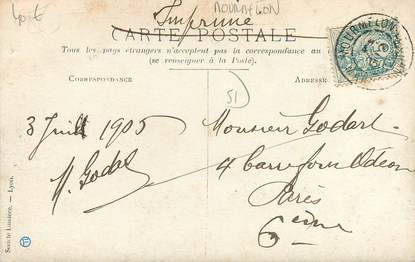 40 €
MOURMELON
Imprimé
CARTE POSTALE
Tous les pays étrangers n'acceptent pas la correspondance au
(se renseigner à la Poste)
CORRESPONDANCE
ADRESSE
51
3 Juill 1905
Monsieur Godart
4 Carrefour Odéon
Paris
6 ème
Sté Lumière. — Lyon.